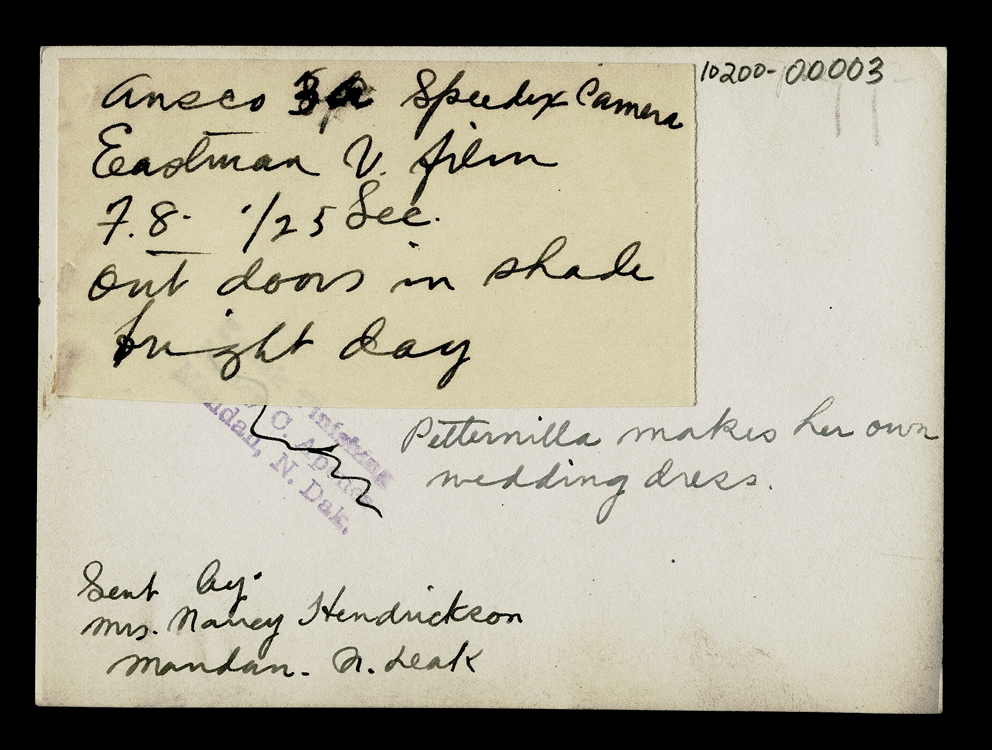 10200-00003
Ansco 3A Speedex Camera
Eastman V. film
7.8. 1/25 Sec.
out doors in shade
bright day
C.
Mandan, N. Dak.
Petternilla makes her own
wedding dress.
Sent by:
Mrs. Nancy Hendrickson
Mandan. N. Dak